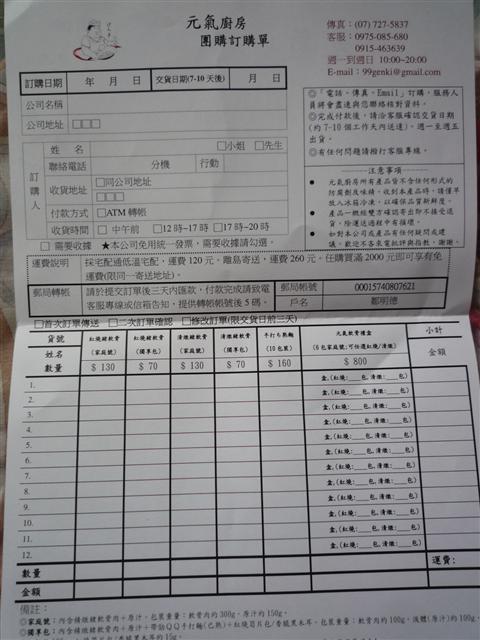 元氣廚房
團購訂購單
傳真：(07) 727-5837
客服：0975-085-680
0915-463639
週一到週日 10:00~20:00
E-mail：99genki@gmail.com
訂購日期 年 月 日 交貨日期(7-10天後) 月 日
公司名稱
公司地址 □□□
◎「電話、傳真、Email」訂購，服務人
員將會盡速與您聯絡核對資料。
◎完成付款後，請洽客服確認交貨日期
(約 7-10 個工作天內送達)，週一至週五
出貨。
◎有任何問題請撥打客服專線。
訂購人
姓 名 □小姐 □先生
聯絡電話 分機 行動
收貨地址 □同公司地址
□□□
付款方式 □ATM 轉帳
收貨時間 □ 中午前 □12 時~17 時 □17 時~20 時
□ 需要收據 ★本公司免用統一發票，需要收據請勾選。
注意事項
● 元氣廚房所有產品皆不含任何形式的
防腐劑及味精，收到本產品時，請儘早
放入冰箱冷凍，以確保品質新鮮度。
● 產品一經經雙方確認寄出即不接受退
貨，除運送過程中有損壞。
● 如對本公司或產品有任何疑問或建
議，歡迎不吝來電批評與指教，謝謝。
運費說明 採宅配通低溫宅配，運費 120 元。離島寄送，運費 260 元。任購買滿 2000 元即可享有免
運費(限同一寄送地址)。
郵局轉帳 請於提交訂單後三天內匯款，付款完成請致電
客服專線或信箱告知，提供轉帳帳號後 5 碼。
郵局帳號 00015740807621
戶名 鄒明德
□首次訂單傳送 □二次訂單確認 □修改訂單(限交貨日前三天)
貨號 紅燒豬軟骨 紅燒豬軟骨 清燉豬軟骨 清燉豬軟骨 手打ち熟麵 元氣軟骨禮盒 小計
姓名 (家庭號) (獨享包) (家庭號) (獨享包) (10 包裝) (6 包家庭號;可任選紅燒/清燉) 金額
數量 $ 130 $ 70 $ 130 $ 70 $ 160 $ 800
1. 盒,(紅燒:___包,清燉:___包)
2. 盒,(紅燒:___包,清燉:___包)
3. 盒,(紅燒:___包,清燉:___包)
4. 盒,(紅燒:___包,清燉:___包)
5. 盒,(紅燒:___包,清燉:___包)
6. 盒,(紅燒:___包,清燉:___包)
7. 盒,(紅燒:___包,清燉:___包)
8. 盒,(紅燒:___包,清燉:___包)
9. 盒,(紅燒:___包,清燉:___包)
10. 盒,(紅燒:___包,清燉:___包)
11. 盒,(紅燒:___包,清燉:___包)
12. 盒,(紅燒:___包,清燉:___包)
數量 運費:
金額
備註：
◎家庭號：內含精燉豬軟骨肉＋原汁。包裝重量：軟骨肉約 300g，原汁約 150g。
◎獨享包：內含精燉豬軟骨肉＋原汁＋帶勁ＱＱ手打麵(已熟)＋紅燒筍片包/香腿黑木耳。包裝重量：軟骨肉約 100g，